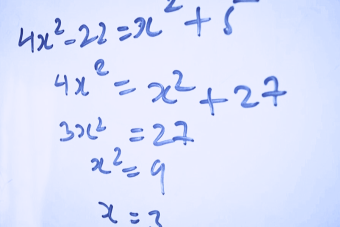 4x²-22=x²+5
4x²=x²+27
3x²=27
x²=9
x=3